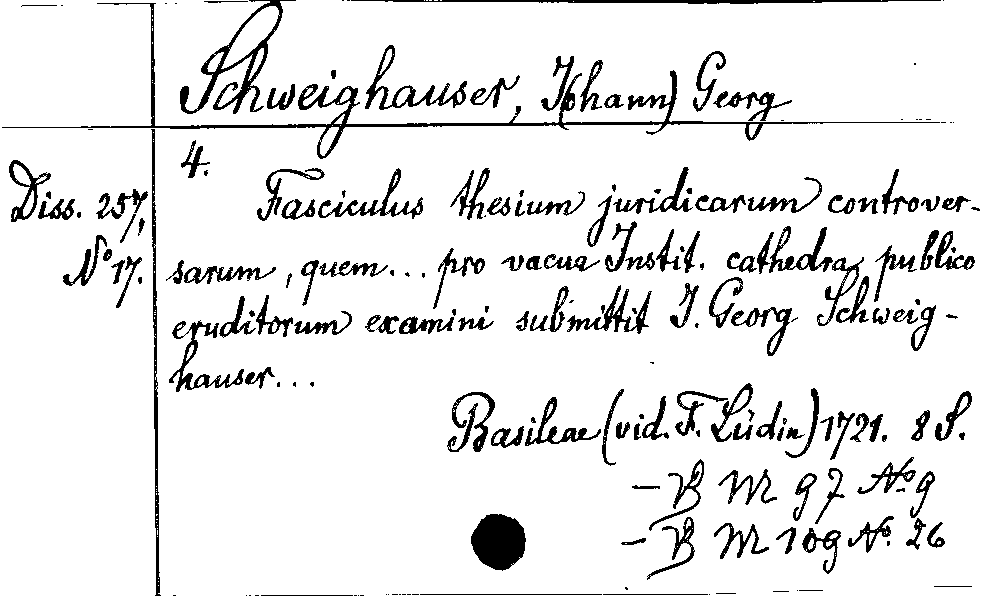 Schweighauser, J(ohann) Georg
4.
Diss. 257,
No 17.
Fasciculus thesium juridicarum controver-
sarum, quem... pro vacua Instit. cathedra publico
eruditorum examini submittit J. Georg Schweig-
hauser...
Basileae (vid. F. Lüdin) 1721. 8 S.
– B M 97 No 9
– B M 109 No. 26